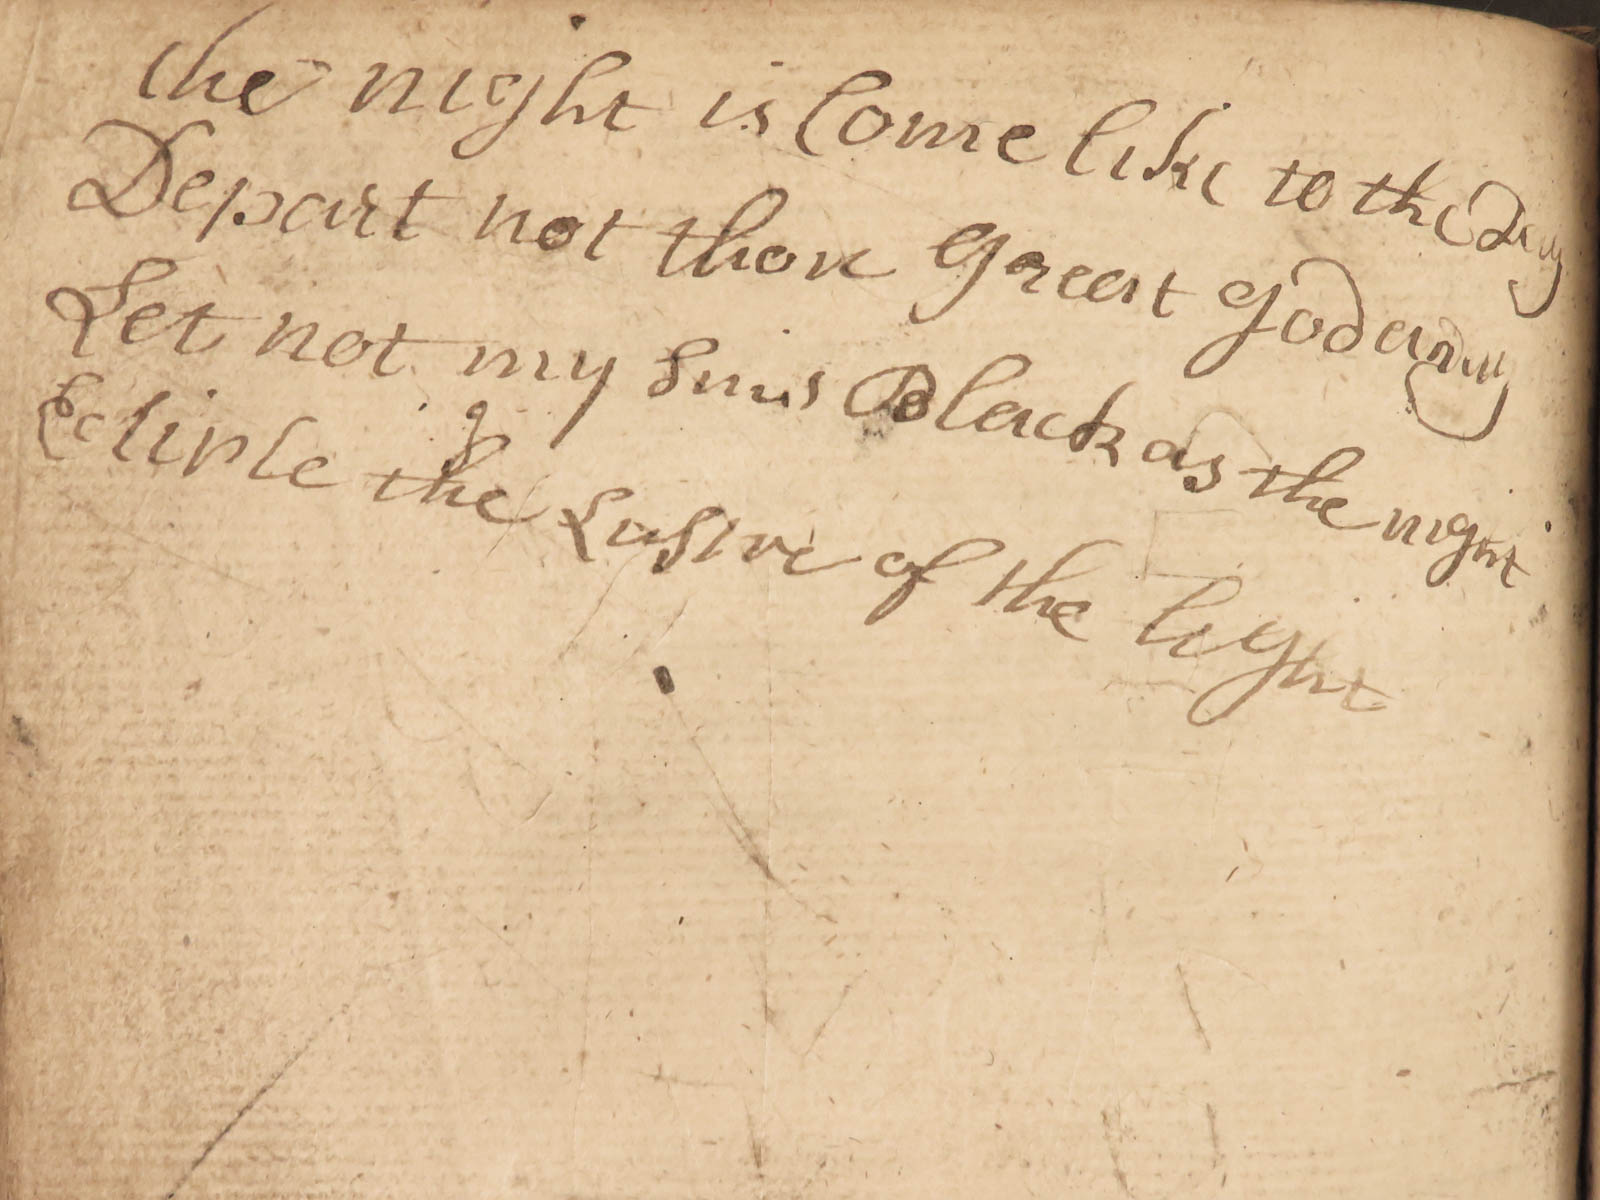 the night is Come like to the day
Depart not thou Great God away
Let not my Sins Black as the night
Eclipse the Lustre of the light